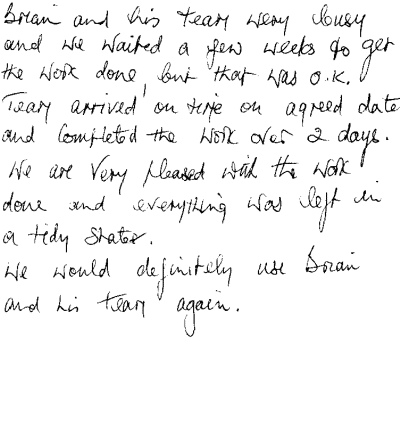 Brian and his team very busy
and we waited a few weeks to get
the work done, but that was o.k.
Team arrived on time on agreed date
and completed the work over 2 days.
We are very pleased with the work
done and everything was left in
a tidy state.
We would definitely use Brian
and his team again.